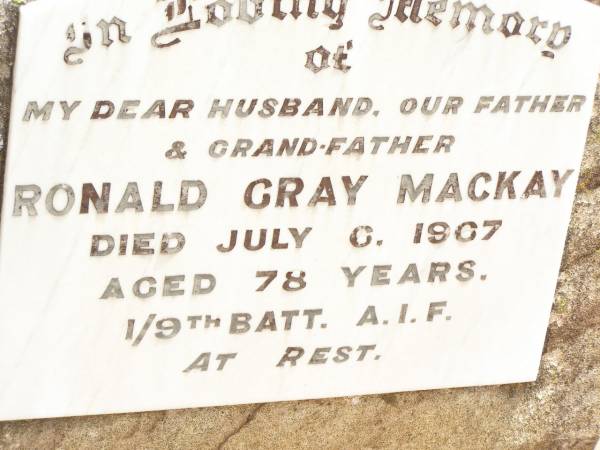 In Loving Memory
of
MY DEAR HUSBAND, OUR FATHER
& GRAND-FATHER
RONALD GRAY MACKAY
DIED JULY 6. 1967
AGED 78 YEARS.
1/9TH BATT. A.I.F.
AT REST.